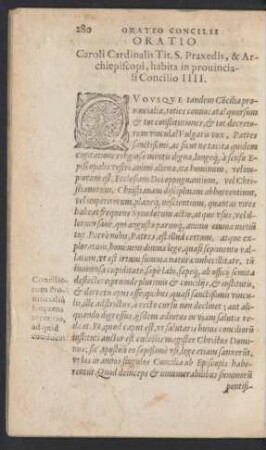 280 ORATIO CONCILII
ORATIO
Caroli Cardinalis Tit. S. Praxedis, & Ar-
chiepiscopi, habita in prouincia-
li Concilio IIII.
QVOVSQVE tandem Cōcilia pro-
uincialia, toties conuocata? quorsum
& tot constitutiones, & tot decreto-
rum vincula? Vulgatis vox, Patres
sanctissimi, ac sunt ne tacita quidem
cogitatione religiosae mentis digna, longeq; à sensu E-
piscopalis vestri animi aliena, ea hominum, vel im-
putantium est, Ecclesiam Dei oppugnantium, vel Chri-
stianorum, Christianam disciplinam abhorrentium,
vel imperitorum, planeq; nescientium, quantas vires
habeat frequens Synodorum actio, atque vsus, vel illo-
rum
tur. Porrò nobis, Patres, est illud certum, atque ex-
ploratum, hominum diuina lege, quasi septum
ualere, ut est irritum summa natura imbecillitate, tū
humanis cupiditate, sæpe labi, sæpeq; ab officij semita
deflectere: proinde plurimis & concilijs, & institu-
tis, & decretis opus esse, quibus, quasi sanctissimis vincu-
lis, ille adstrictus, à recto cursu non declinet; aut ali-
quando digressus, eisdem adiutus in viam salutis re-
deat. Et, quod caput est, ut salutaris huius conciliorū
instituti auctor est coelestis magister Christus Domi-
nus, sic Apostoli eo septissimè vsi, lege etiam sanxerūt,
vt bis in annos singulos Concilia ab Episcopis habe-
rentur. Quid deinceps & innumerabilibus
pontifi-
Concilio-
rum Pro-
uincialiū
frequens
ad quid
conducat.